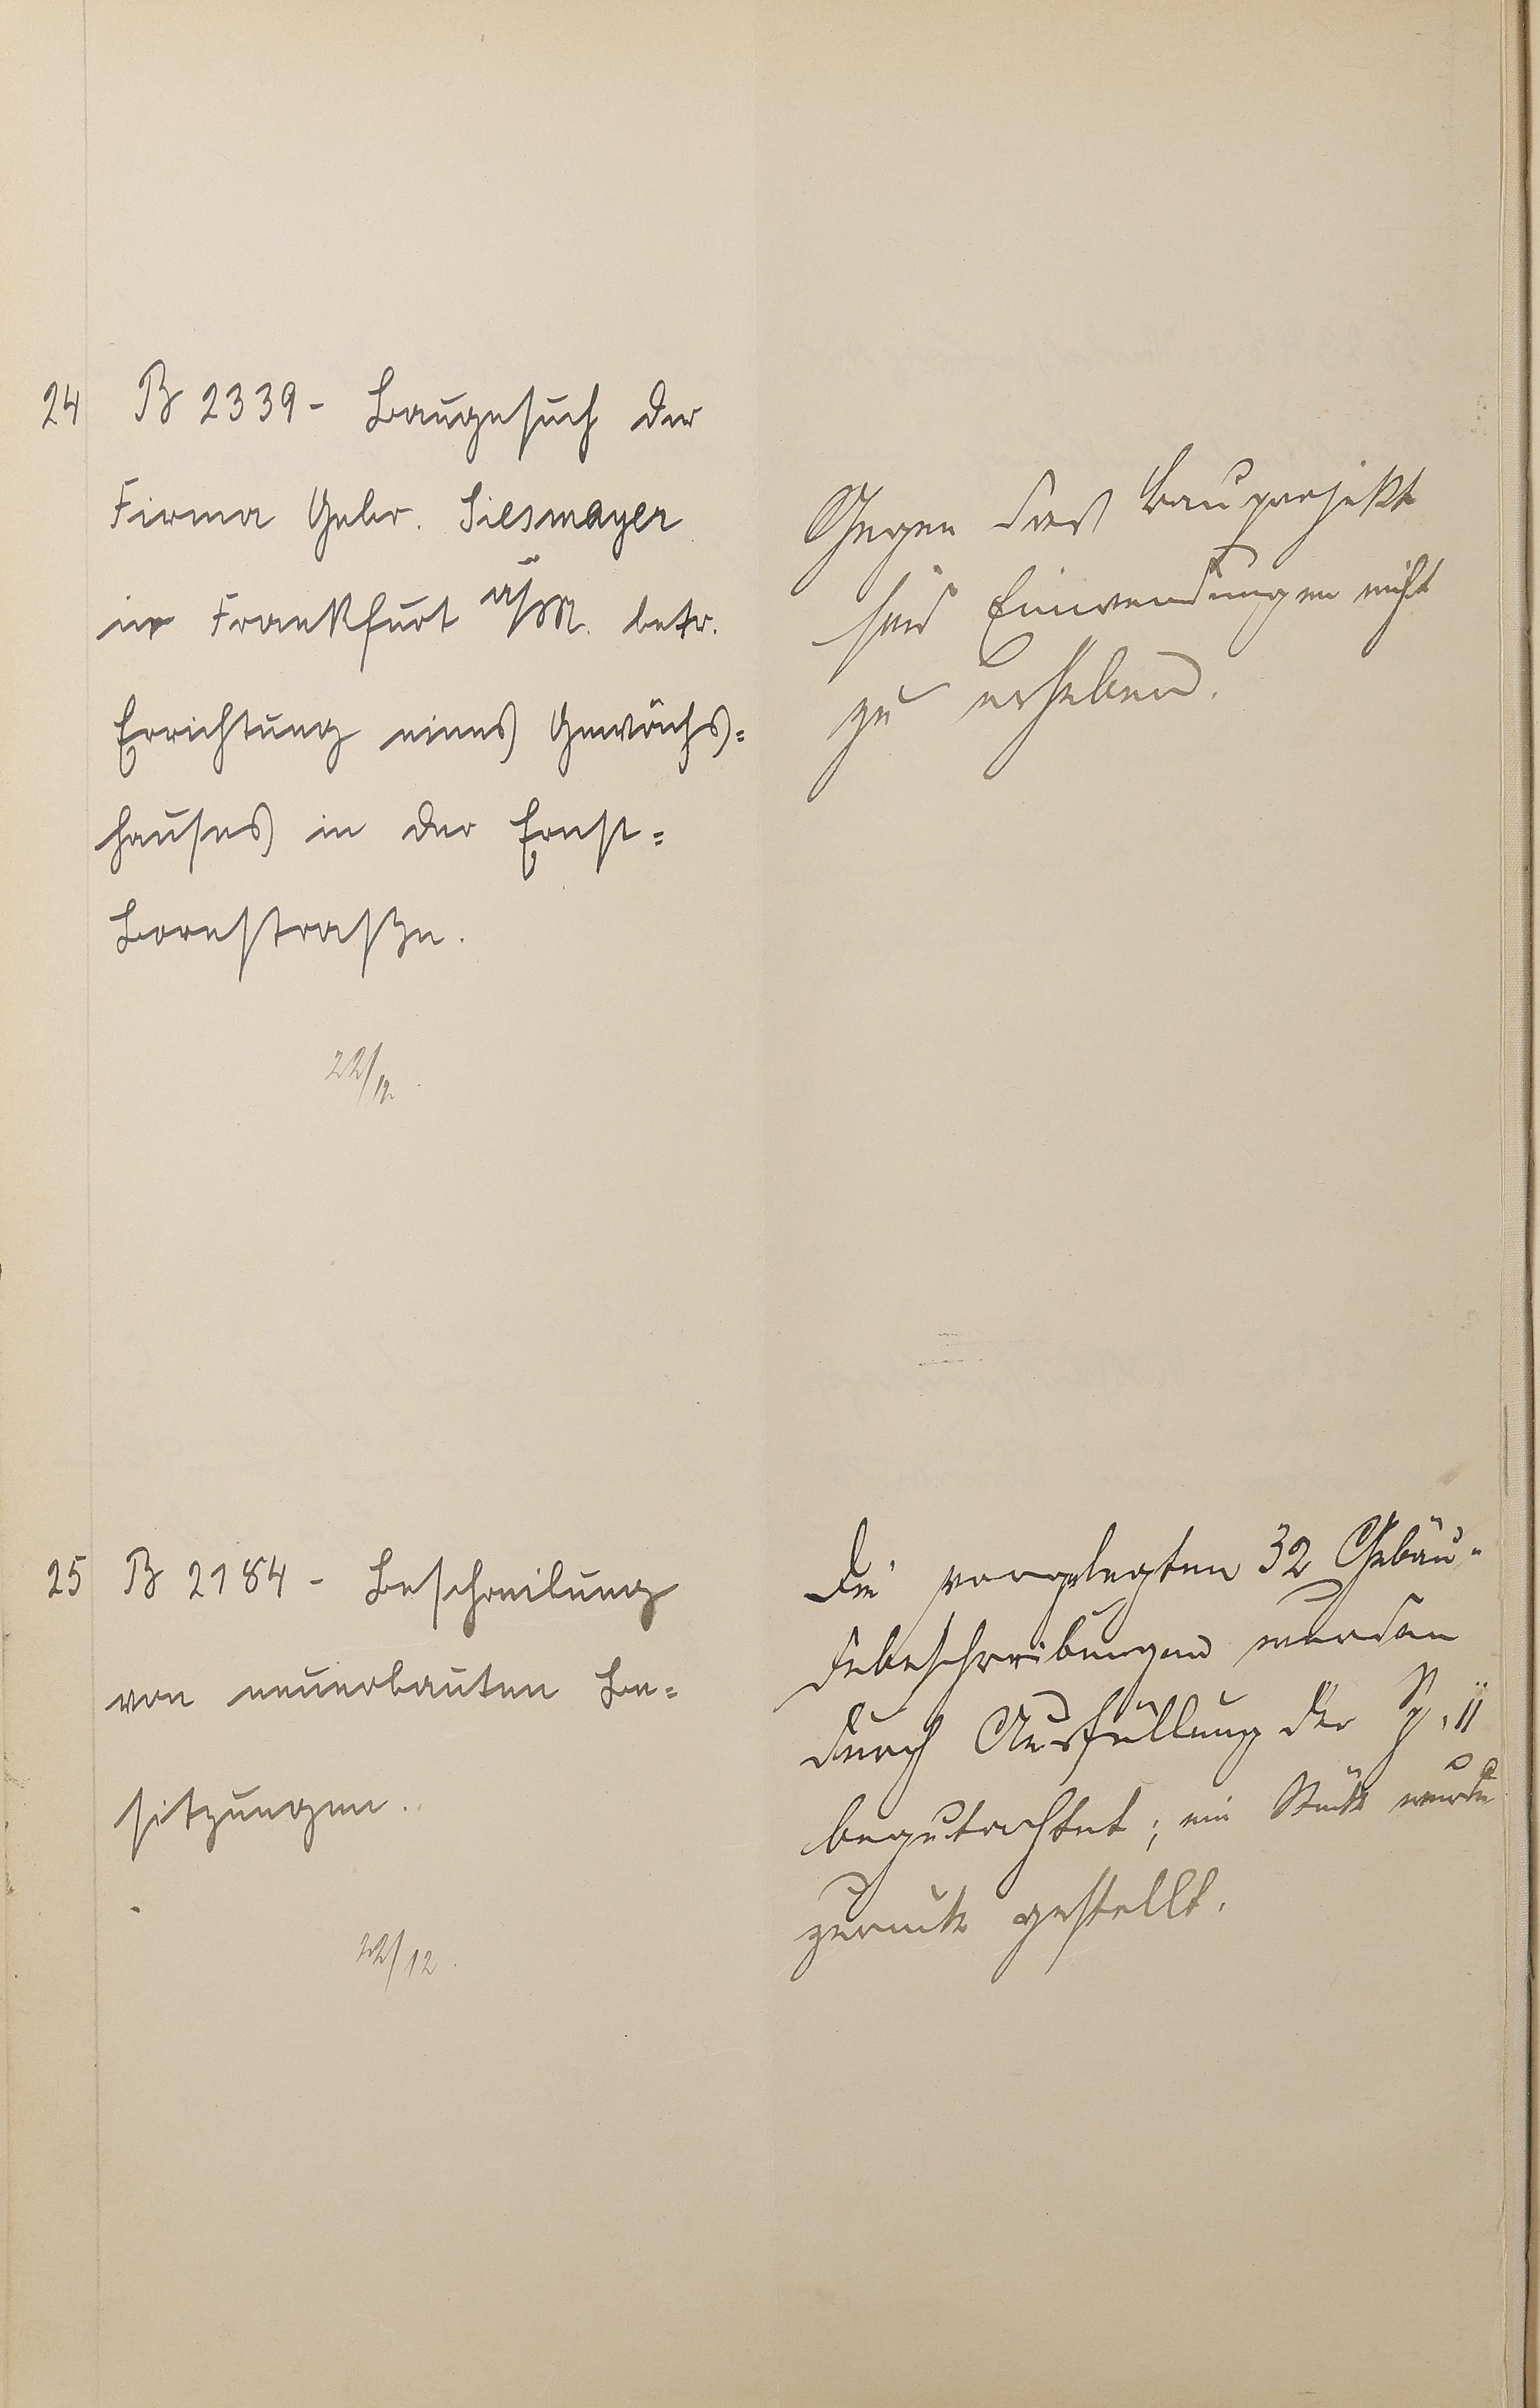 24 B 2339 - Baugesuch der
Firma Gebr. Siesmayer
in Frankfurt a/M. betr.
Errichtung eines Gewächs=
hauses in der Ernst=
Bornstraße.
22/12.
Gegen das Bauprojekt
sind Einwendungen nicht
zu erheben.
25 B 2184 - Beschreibung
von neuerbauten Be=
sitzungen.
22/12.
Die vorgelegten 32 Gebäu-
debeschreibungen wurden
durch Ausfüllung der Sp. 11
begutachtet; ein Stück wurde
zurück gestellt.